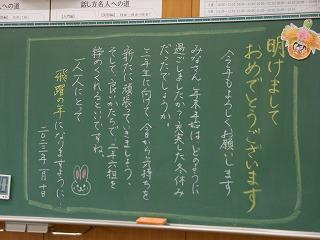 話し方名人への道
明けまして
おめでとうございます
今年もよろしくお願いします
みなさん、年末年始はどのように
過ごしましたか?充実した冬休み
だったでしょうか。
三年生に向けて、今日から気持ちを
新たに頑張っていきましょう。
そして、良いかたちで、二年六組を
締めくくれるといいですね。
一人一人にとって
飛躍の年になりますように…
二〇二三年一月十日